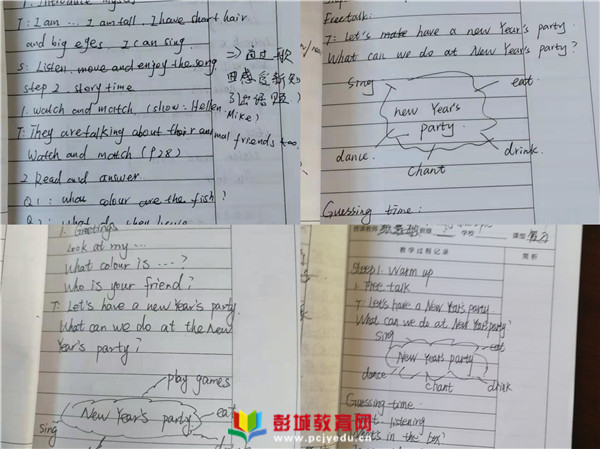 1. Introduce myself
T: I am ... I am tall. I have short hair
and big eyes. I can sing.
S: Listen, move and enjoy the song
step 2 story time
1. watch and match (show: Hellen
Mike)
T: They are talking about their animal friends too.
Watch and match (P28)
2 Read and answer.
Q1: what colour are the fish?
=> 通过歌
引出话题)
Freetalk:
T: Let's make have a new Year's party.
What can we do at New Year's party?
sing
eat
new Year's
party
dance
chant
drink
Guessing time:
1. Greetings
Look at my ...
What colour is ...?
Who is your friend?
T: Let's have a new Year's party.
What can we do at the New
Year's party?
play games
New Year's party
eat
sing
授课教师
学校
课型
教学过程记录
简析
Step 1. Warm up
1. Free talk
T: Let's have a New Year's party.
What can we do at New Year's party?
sing
eat
New Year's party
dance
chant
drink
Guessing time
listening
What's in the box?
彭城教育网
www.pcjyedu.cn